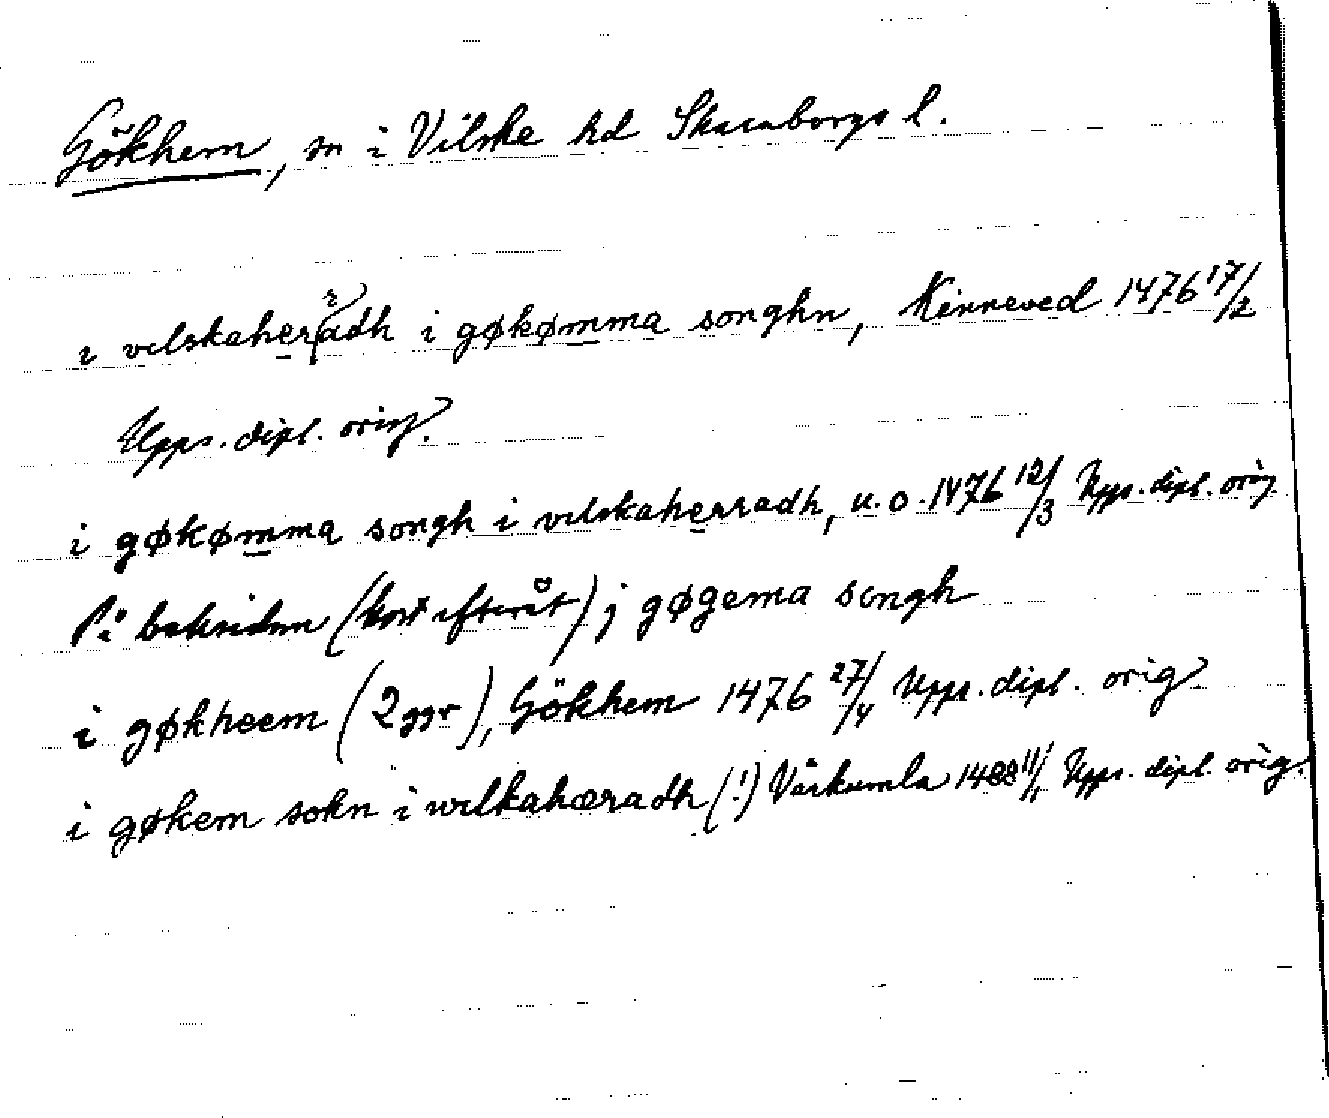 Gökhem, sn i Vilske hd Skaraborgs l.
i vilskaherradh i gøkømma songhn, Kinneved 1476 17/2
Upps. dipl. orig.
i gøkømma songh i vilskaherradh, u.o. 1476 12/3 Upps. dipl. orig
På baksidan (kort efteråt) j gøgema songh
i gøkheem (2 ggr), Gökhem 1476 27/4 Upps. dipl. orig
i gøkem sokn i wilkahæradh (!) Vårkumla 1488 11/1 Upps. dipl. orig.